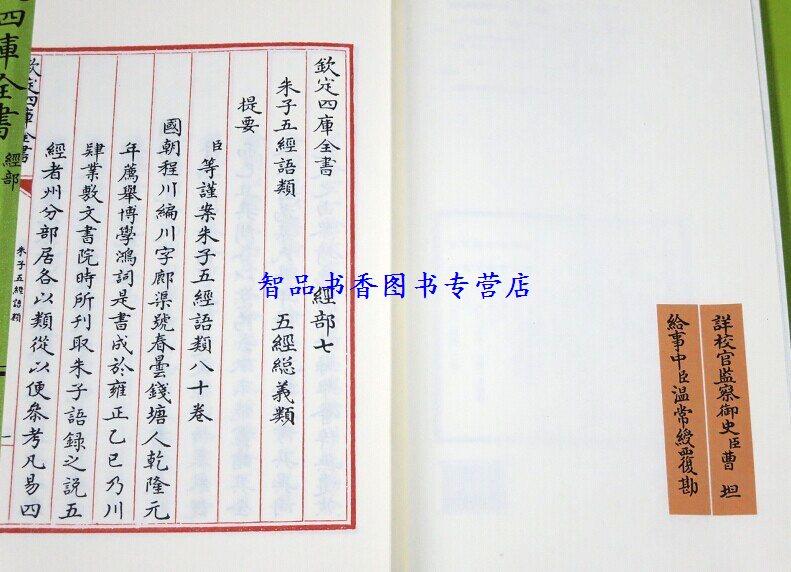 詳校官監察御史臣曹坦
給事中臣溫常綬覆勘
欽定四庫全書 經部七
朱子五經語類 五經總義類
提要
臣等謹案朱子五經語類八十卷
國朝程川編川字郎渠號春曇錢塘人乾隆元
年薦舉博學鴻詞是書成於雍正乙巳乃川
肄業敷文書院時所刊取朱子語録之説五
經者州分部居各以類從以便叅考凡易四
欽定四庫全書
朱子五經語類
一
四庫全書 經部
智品书香图书专营店